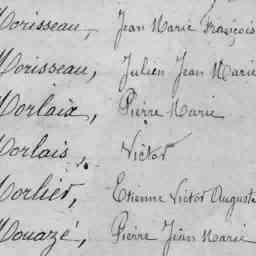 Morisseau, Jean Marie François
Morisseau, Julien Jean Marie
Morlaix, Pierre Marie
Morlais, Victor
Morlier, Etienne Victor Auguste
Mouazé, Pierre Jean Marie